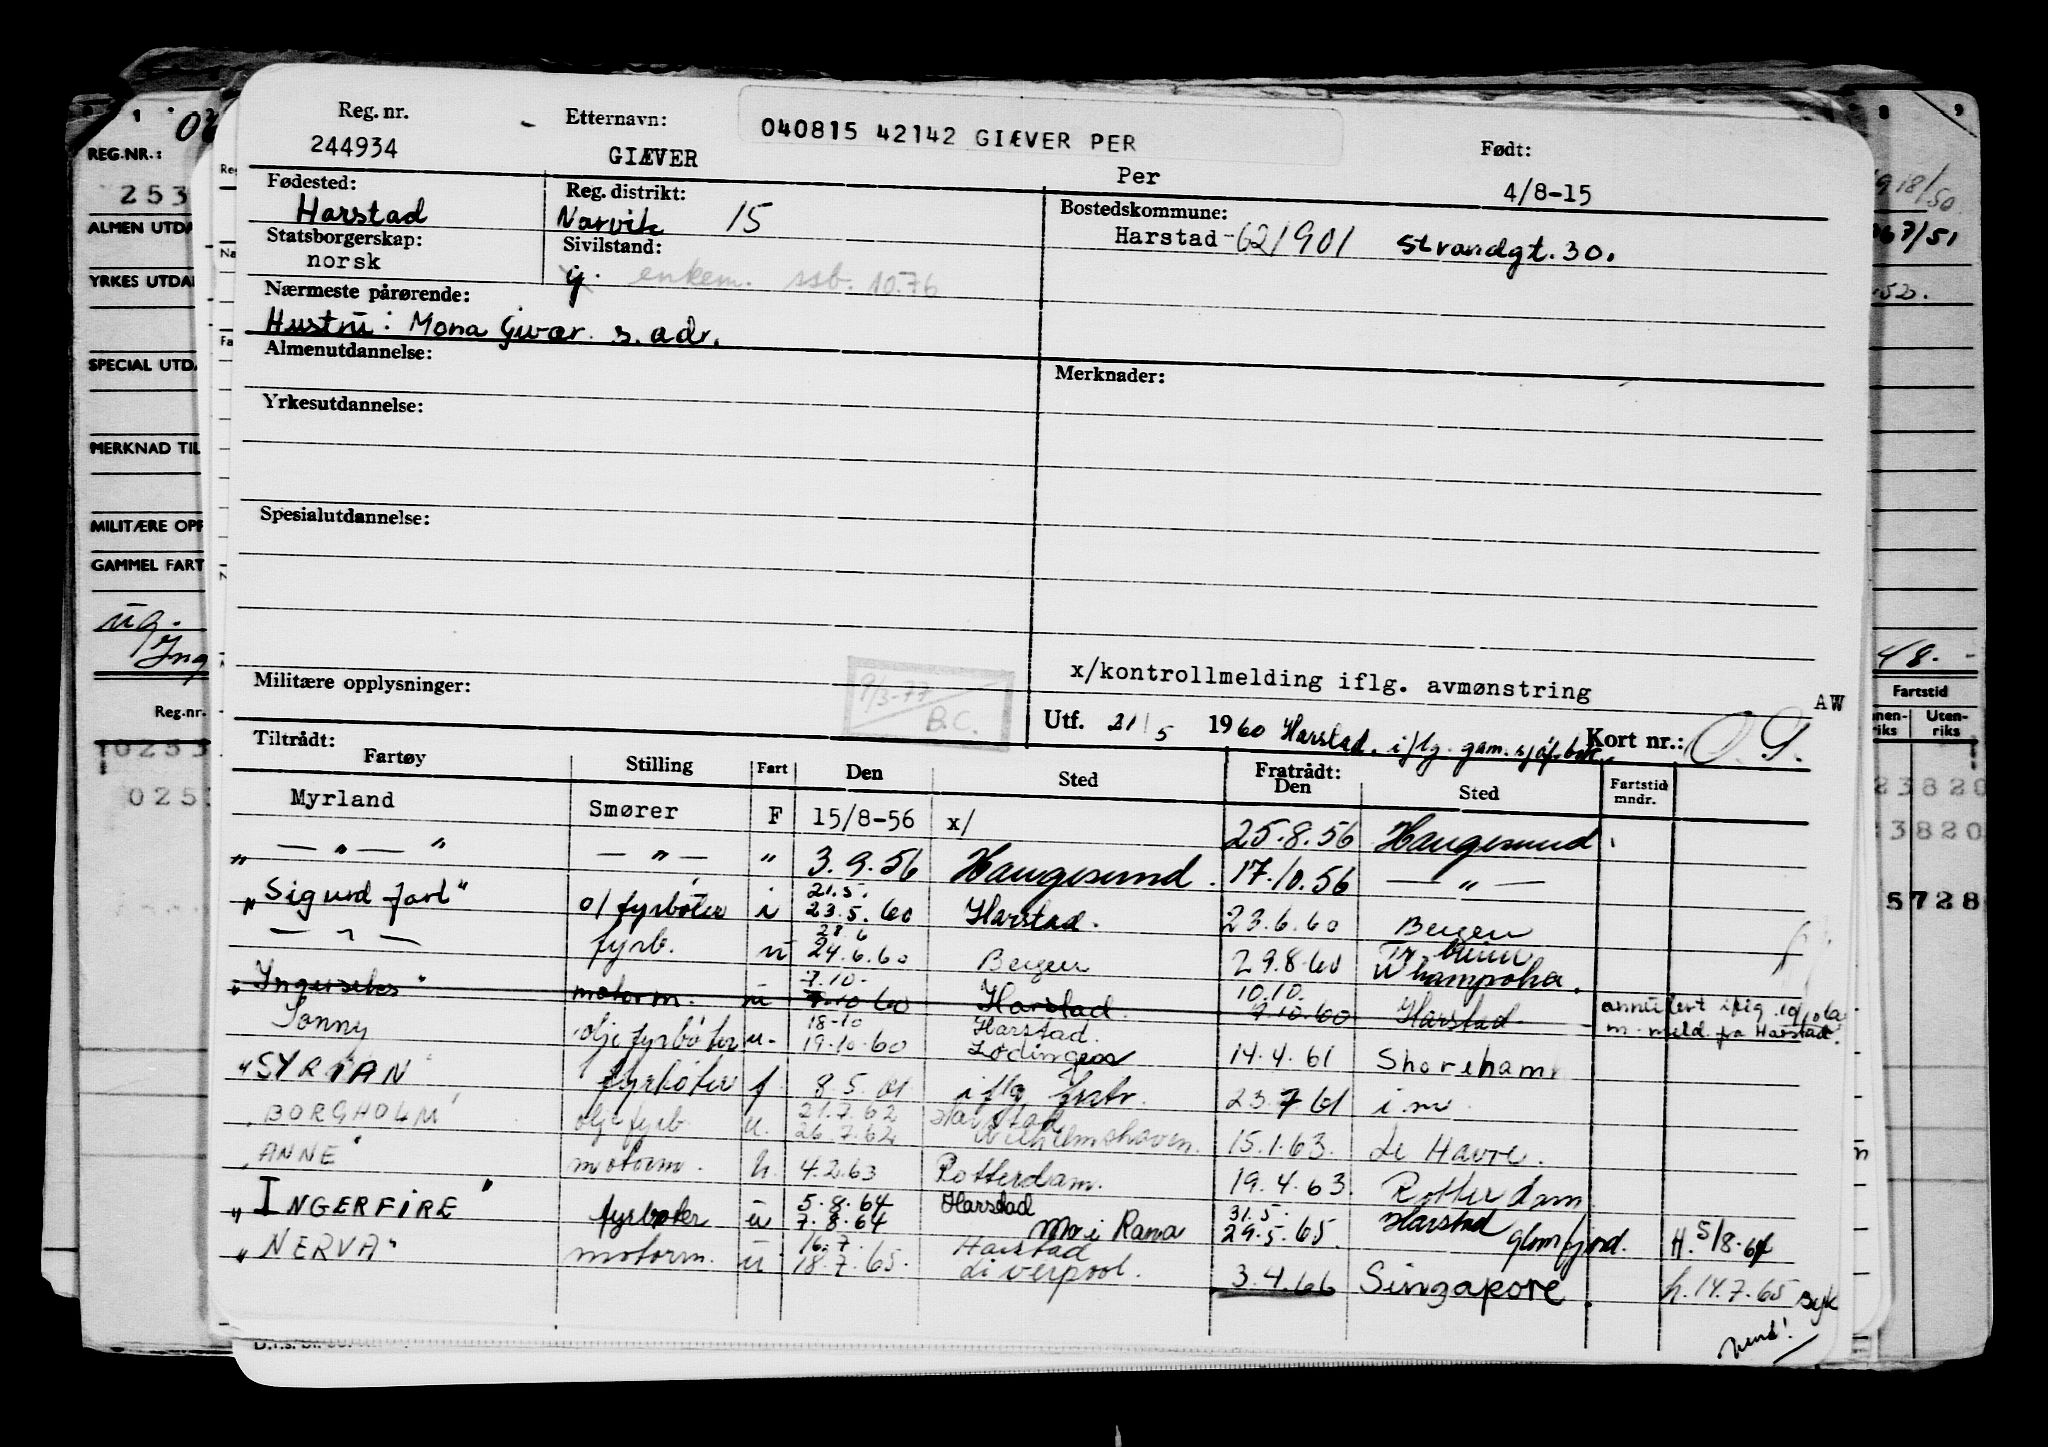 Reg. nr. Etternavn: 040815 42142 GIÆVER PER Født:
244934 GIÆVER Per 4/8-15
Fødested: Reg. distrikt: Bostedskommune:
Harstad Narvik 15 Harstad - 62/901 Strandgt. 30.
Statsborgerskap: Sivilstand:
norsk g. enkem. ssb. 10.76
Nærmeste pårørende:
Hustru: Mona Givær s. adr.
Almenutdannelse: Merknader:
Yrkesutdannelse:
Spesialutdannelse:
x/kontrollmelding iflg. avmønstring
Militære opplysninger: 9/3-77 B.C. AW
Utf. 21/5 1960 Harstad. iflg. gam. sjøf.bok. Kort nr.:
Tiltrådt: Fratrådt:
Fartøy Stilling Fart Den Sted Den Sted Fartstid mndr.
Myrland Smører F 15/8-56 x/ 25.8.56 Haugesund
" — " — " — " — " 3.9.56 Haugesund. 17.10.56 — " —
21.5.
"Sigurd Jarl" o/fyrbøter i 23.5.60 Harstad. 23.6.60 Bergen
28.6
— " — fyrb. u 24.6.60 Bergen 29.8.60 Whampoha.
7.10. 10.10.
"Ingerseks" motorm. u 7.10 60 Harstad. 9.10.60 Harstad annulert iflg. 10/10 60
m. meld. fra Harstad.
18-10 Harstad.
Sonny oljefyrbøter u. 19.10.60 Lødingen 14.4.61 Shoreham
"SYRIAN" fyrbøter f. 8.5.61 iflg fratr. 23.7.61 i.m.
21.7.62 Harstad
"BORGHOLM" oljefyrb. u. 26.7.62 Wilhelmshaven. 15.1.63. Le Havre.
"ANNE" motorm. u. 4.2.63 Rotterdam. 19.4.63. Rotterdam
5.8.64 Harstad 31.5. Harstad
"INGERFIRE" fyrbøter u 7.8.64 Mo i Rana 29.5.65. Glomfjord. H. 5/8-64
16.7. Harstad
"NERVA" motorm. u 18.7.65. Liverpool. 3.4.66 Singapore. h. 14.7.65 syk
Vend!
REG.NR.:
253
ALMEN UTDA
YRKES UTDA
SPECIAL UTDA
MERKNAD TIL
MILITÆRE OPP
GAMMEL FART
Reg.nr.
0253
0253
18/50
67/51
48.-
Fartstid
Innen-riks Uten-riks
23820
3820
5728